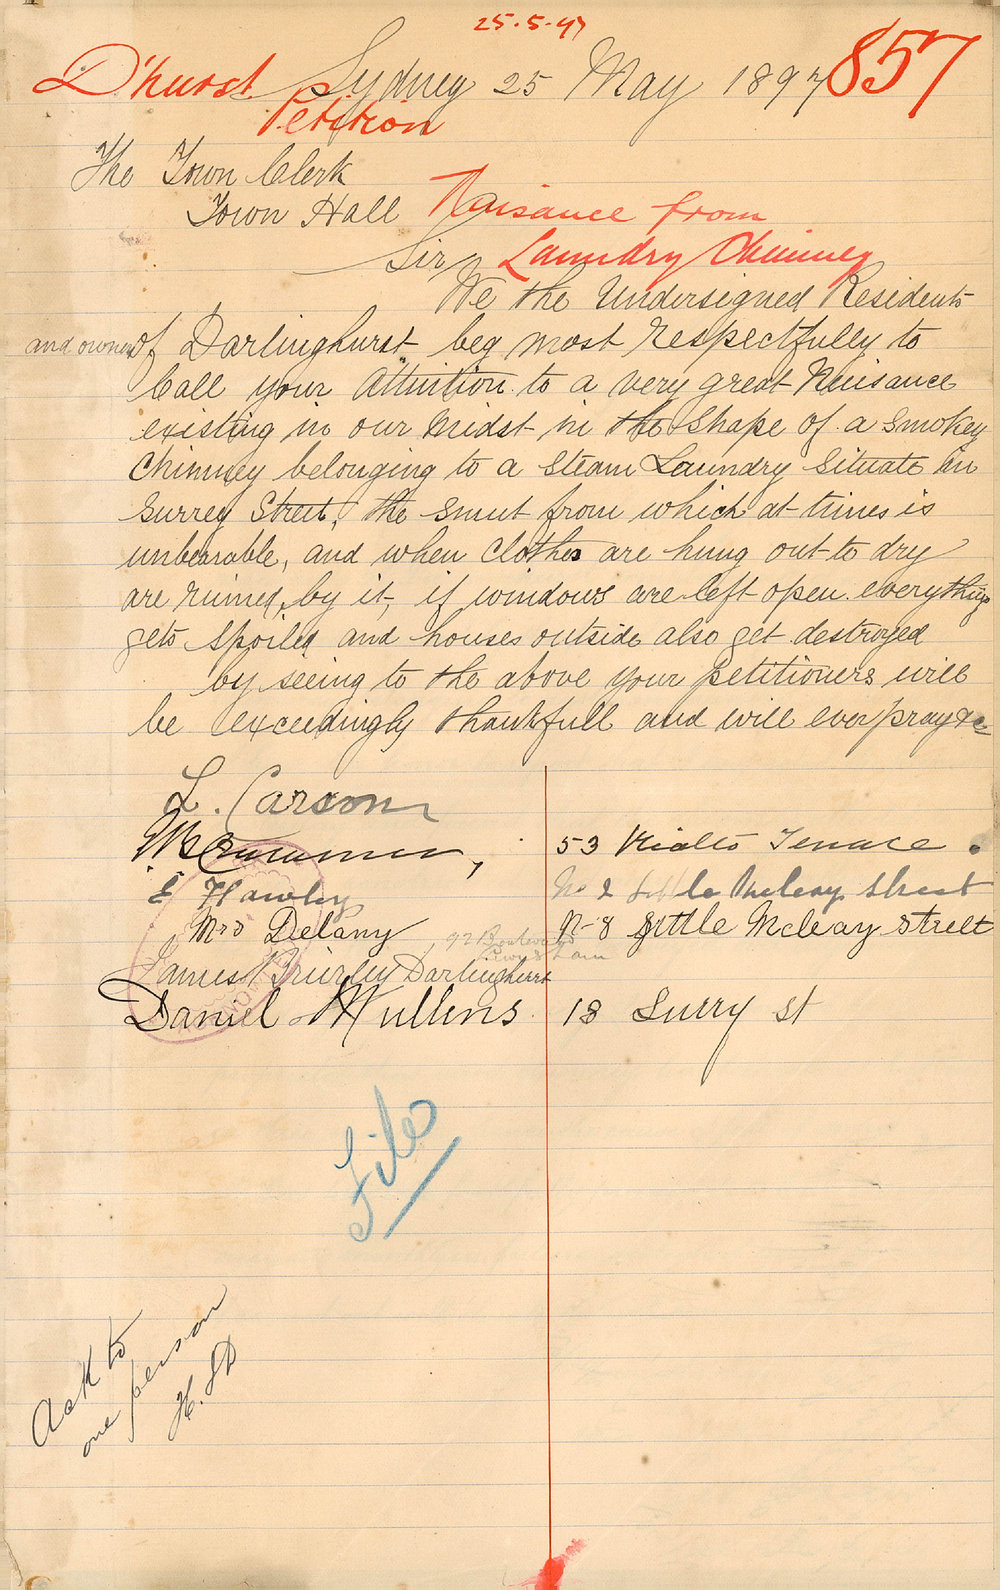 25.5.97
D'hurst Sydney 25 May 1897 857
Petition
The Town Clerk
Town Hall Naisance from
Sir, Laundry Chimney
We the Undersigned Residents
and owners of Darlinghurst beg most respectfully to
Call your Attintion to a very great Nuisance
existing in our midst in the Shape of a Smokey
Chimney belonging to a Steam Laundry Situate in
Surrey Street, the smut from which at times is
unbearable, and when Clothes are hung out to dry
are ruined, by it, if windows are left open everything
gets spoiled and houses outside also get destroyed
by seeing to the above your petitioners will
be exceedingly thankfull and will ever pray &c
L. Carson
53 Rialto Terrace
E Hawley No 2 Little Mcleay Street
Mrs Delany N-8 Little Mcleay Street
James Brierley Darlinghurst 92
Daniel Mullins 18 Surry st
File
Ask to
one person